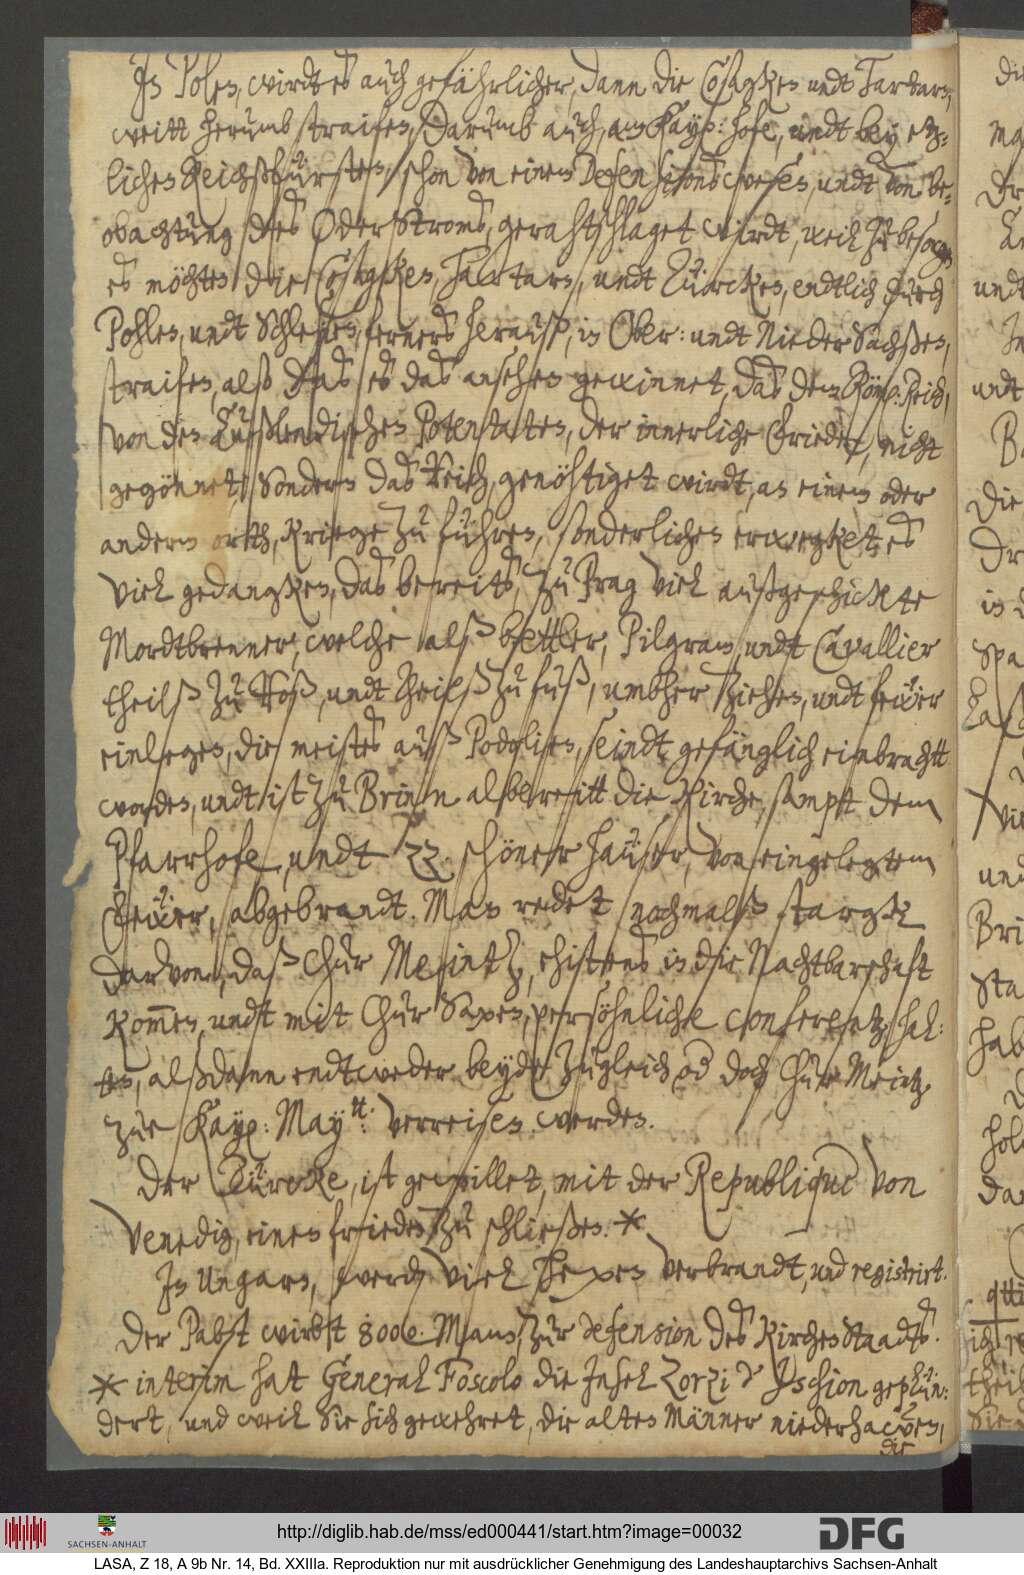 In Polen, wirdt es auch gefährlicher, dann die Cosagken undt Tartarn,
weitt herumb straifen, Darumb auch, am Kayß: hofe, undt bey etz-
lichen Reichsfürsten, schon von einem Defensionswesen, undt von be-
obachtung des OderStroms, gerahtschlaget wirdt, weil zu besorgen
es möchten die Cosagken, Tartarn, undt Türcken, endtlich durch
Pohlen, undt Schlesien, ferners herauß, in Ober: undt NiederSachßen,
straifen, alß das es das ansehen gewinnet, das dem Röm: Reich,
von den Außlendischen Potentaten, der innerliche Friede, nicht
gegönnet, Sondern das Reich, genöhtiget wirdt, an einem oder
anderm orth, Kriege zu führen, sonderlichen erwegket es
viel gedangken, das bereits, zu Prag viel außgeschickte
Mordtbrenner, welche alß bettler, Pilgram, undt Cavallier
theilß zu Roß, undt theilß zu fuß, umbher ziehen, undt feẅer
einlegen, die meistes auß Podolien, seindt gefänglich einbracht
worden, undt ist zu Brinn albereitt die Kirche, sampt dem
Pfarrhofe, undt 22 schöner haüser, von eingelegtem
Feẅer, abgebrandt. Man redet nochmalß stargk
darvon, daß Chur Meintz, ehistens in die Nachtbarschaft
kom̅en, undt mit Chur Saxen, persöhnliche conferentz, hal:
ten, alßdann endtweder beyde zugleich od doch Chur Meintz
zur Kayß: Maytt: verreisen werden.
Der Türcke, ist gewillet, mit der Republique von
Venedig, einen frieden zu schließen. *
In Ungarn, werden viel Hexen verbrandt, und registrirt.
Der Pabst wirbt 8000 Mann, zur defension des KirchenStaads.
* interim hat General Foscolo die Insel Zorzi d' Yschion geplün:
dert, und weil Sie sich gewehret, die alten Männer niederhawen,
die
http://diglib.hab.de/mss/ed000441/start.htm?image=00032
SACHSEN-ANHALT
DFG
LASA, Z 18, A 9b Nr. 14, Bd. XXIIIa. Reproduktion nur mit ausdrücklicher Genehmigung des Landeshauptarchivs Sachsen-Anhalt